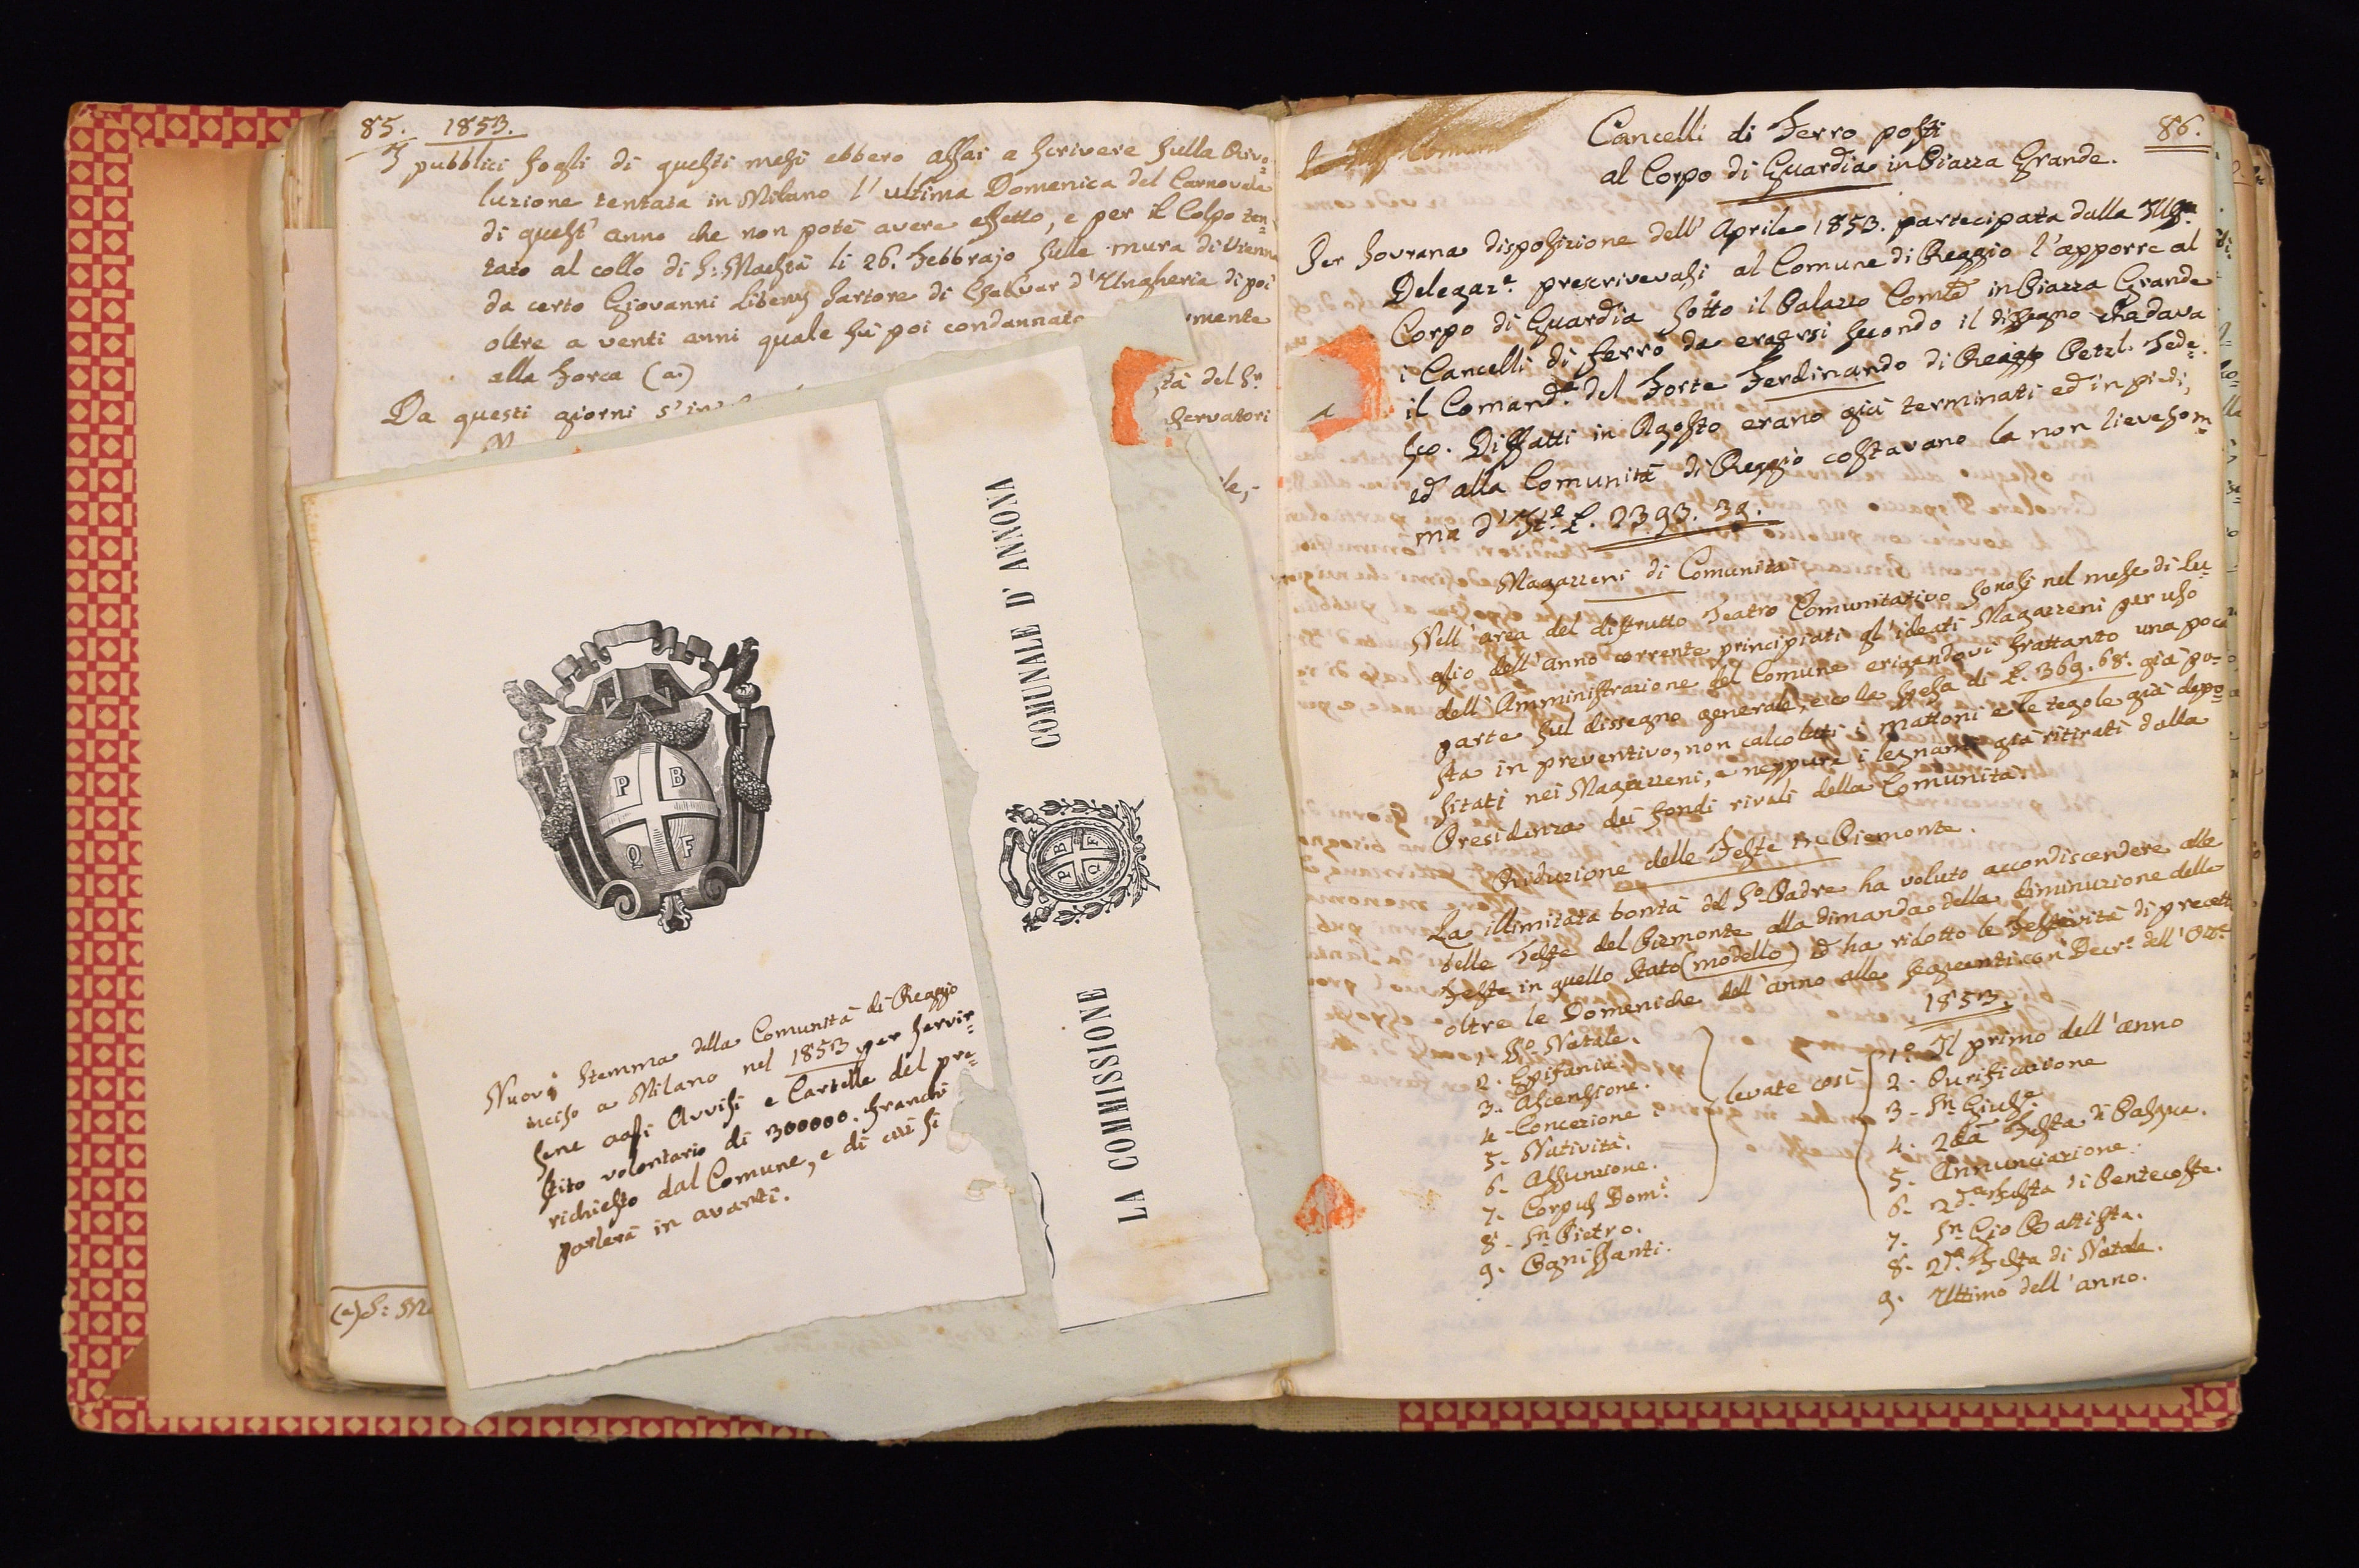 85. 1853.
I pubblici Fogli di questi mesi ebbero assai a scrivere sulla Rivo=
luzione tentata in Milano l'ultima Domenica del Carnovale
di quest'anno che non potè avere effetto, e per il Colpo ten=
tato al collo di S: Maestà li 26. Febbrajo sulle mura di Vienna
da certo Giovanni Libeny Sartore di d'Ungheria di poi
oltre a venti anni quale fù poi condannato
alla Forca (a.)
Da questi giorni
tà del Sr
servatori
(a) S:
P B
Q F
Nuovi Stemma della Comunità di Reggio
inciso a Milano nel 1853 per servir=
sene agli Avvisi e Cartelle del pre=
stito volontario di 300000. Franchi
richiesto dal Comune, e di cui si
parlerà in avanti.
LA COMMISSIONE
P B
Q F
COMUNALE D'ANNONA
86.
Cancelli di Ferro posti
al Corpo di Guardia in Piazza Grande.
Per Sovrana disposizione dell'Aprile 1853. partecipata dalla
Delegaze. prescrivevasi al Comune di Reggio l'apporre al
Corpo di Guardia sotto il Palazzo in Piazza Grande
i Cancelli di ferro da erigersi secondo il dissegno che dava
il Comande. del Forte Ferdinando di Reggio Petzl. Tede=
sco. Diffatti in Agosto erano già terminati ed in piedi,
ed alla Comunità di Reggio costavano la non lieve som=
ma d' £. 2393. 39.
Magazzeni di Comunità
Nell'area del distrutto Teatro Comunitativo sonosi nel mese di Lu=
glio dell'anno corrente principiati gl'ideati Magazzeni per uso
dell'Amministrazione del Comune erigendovi frattanto una poca
parte sul dissegno generale, e colla spesa di £. 369. 68. già po=
sta in preventivo, non calcolati i mattoni e le tegole già depo=
sitati nei Magazzeni, e neppure i legnami già ritirati dalla
Presidenza dei fondi rivali della Comunità.
Riduzione delle Feste in Piemonte.
La illimitata bontà del So. Padre ha voluto accondiscendere alle
delle Feste del Piemonte alla dimanda della diminuzione delle
Feste in quello Stato (modello) ed ha ridotto le Festività di precetto
oltre le Domeniche dell'anno alle seguenti con Decro. dell'
1853.
1- So. Natale.
2. Epifania.
3. Ascensione.
4- Concezione.
5- Natività.
6. Assunzione.
7. Corpus Domi.
8- Sn. Pietro.
9. Ognissanti.
levate così
1o. Il primo dell'anno
2. Purificazione
3- Sn. Giuse.
4. 2da Festa di Pasqua.
5. Annunciazione.
6. 2da. Festa di Pentecoste.
7. Sn. Gio Battista.
8. 2da. Festa di Natale.
9. Ultimo dell'anno.